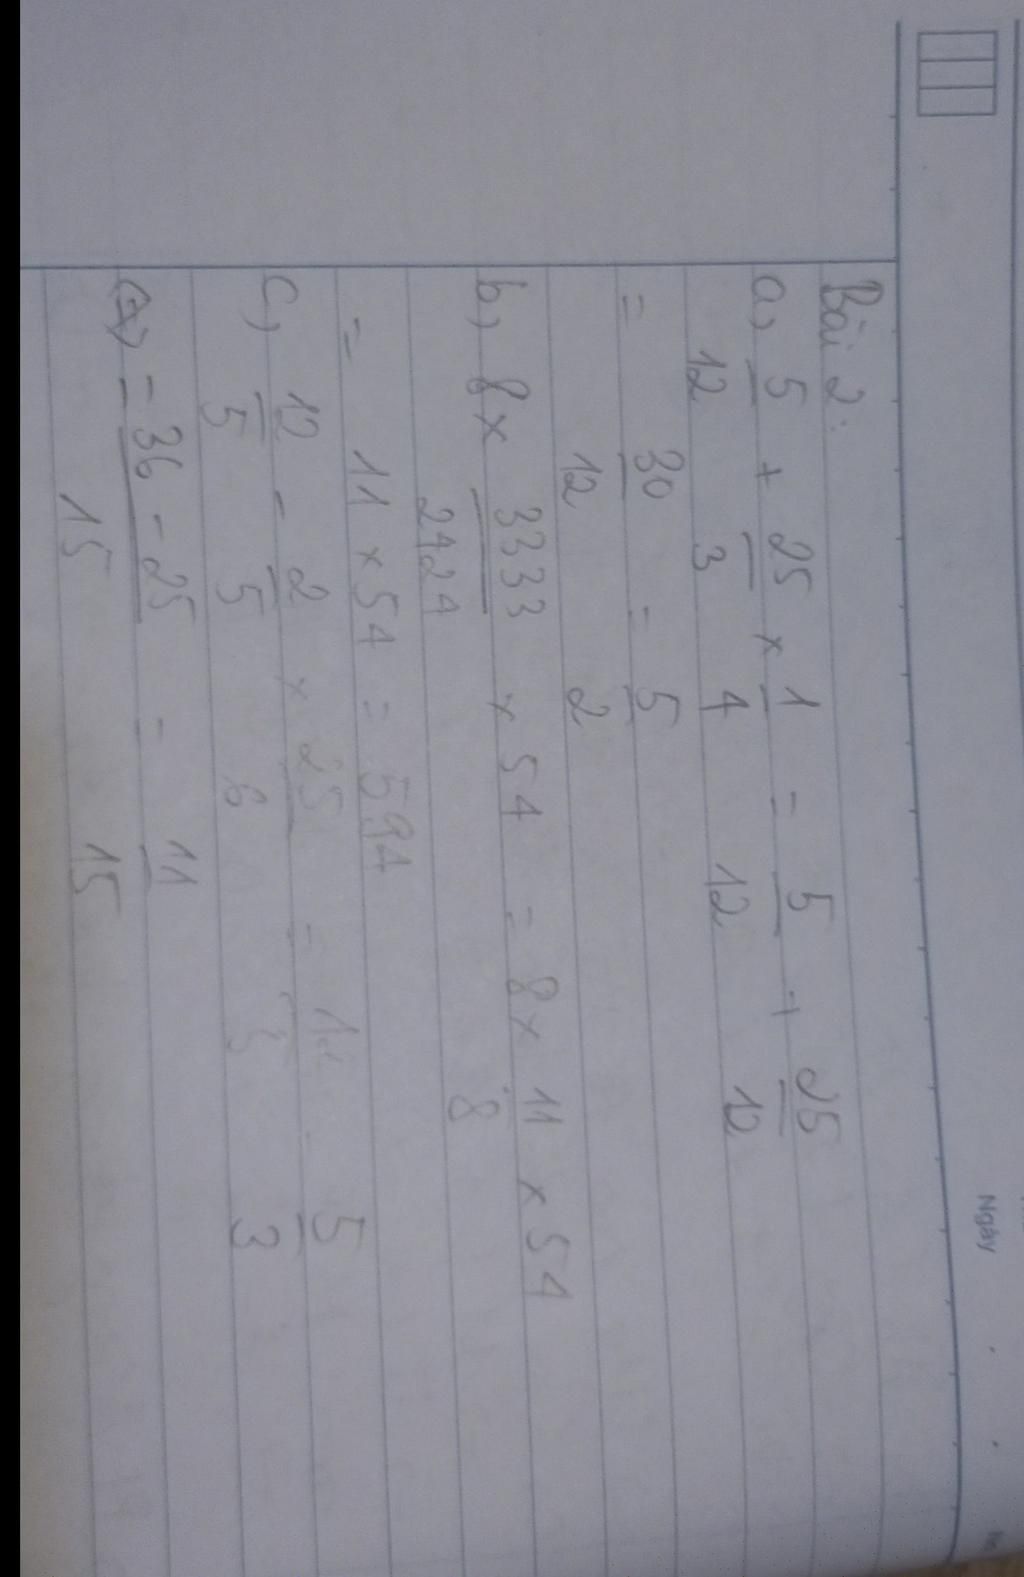 Ngày
Bài 2:
a, 5/12 + 25/3 × 1/4 = 5/12 + 25/12
= 30/12 = 5/2
b, 8 × 3333/2424 × 54 = 8 × 11/8 × 54
= 11 × 54 = 594
c, 12/5 - 2/5 × 25/6 = 12/5 - 5/3
= 36 - 25/15 = 11/15